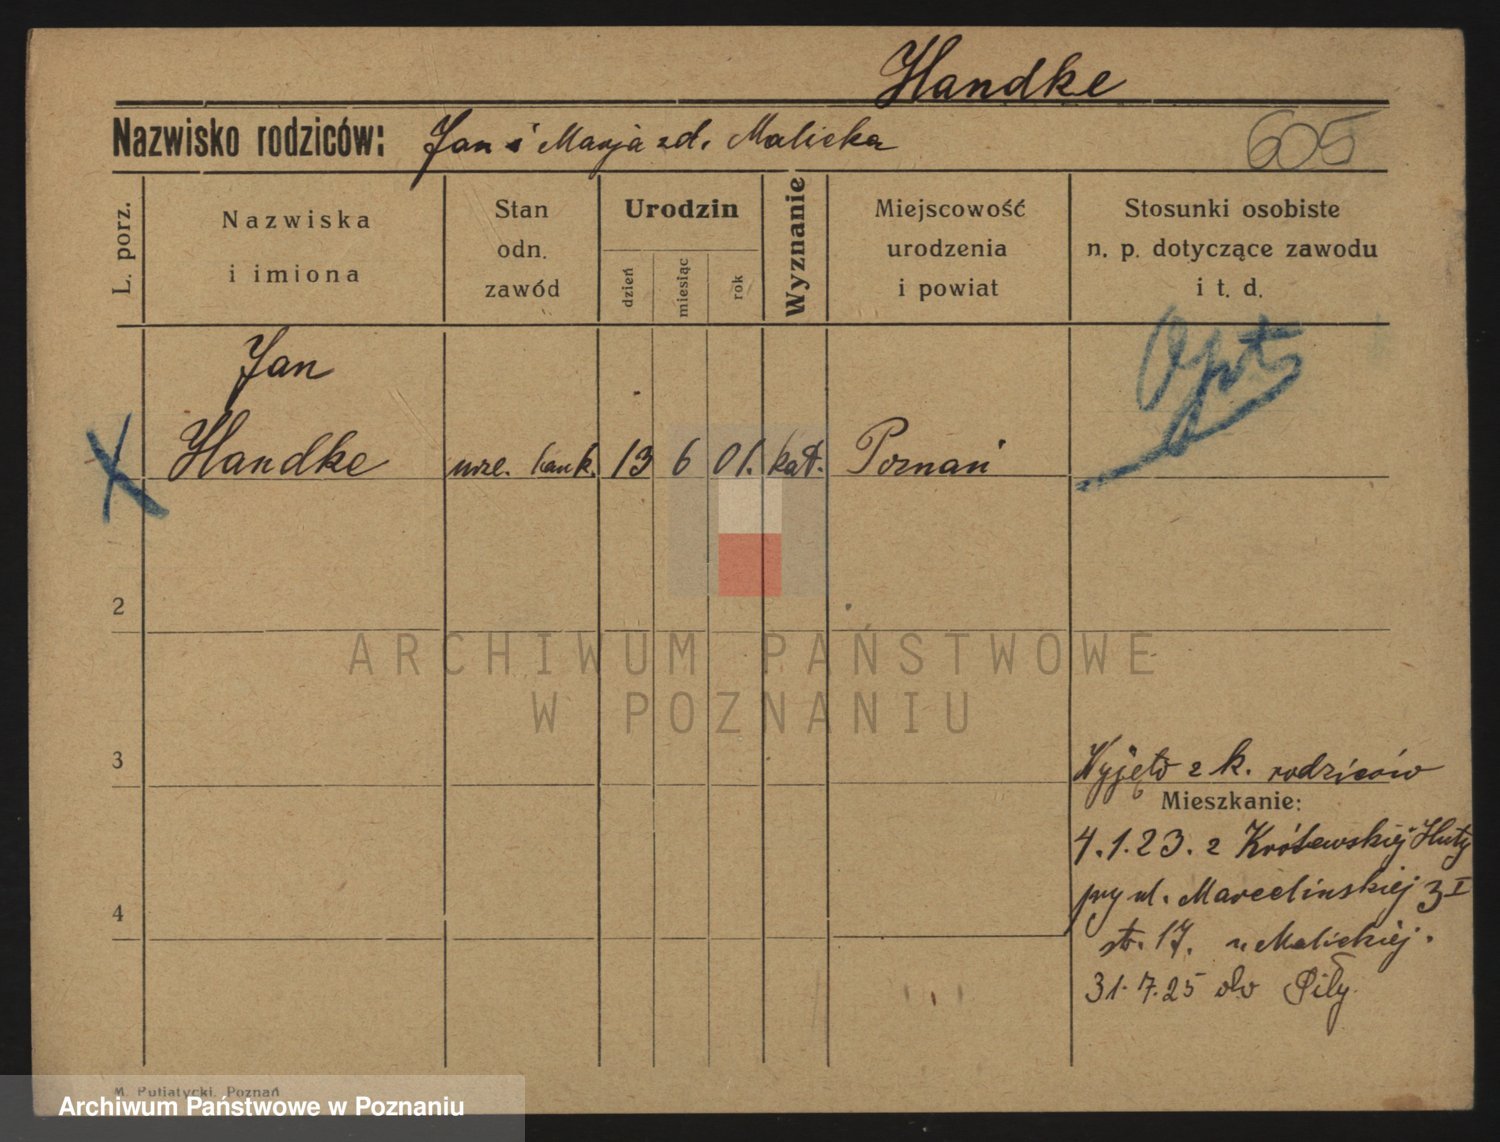 Handke
Nazwisko rodziców: Jan i Marja zd. Malicka
605
L. porz.
Nazwiska
i imiona
Stan
odn.
zawód
Urodzin
dzień
miesiąc
rok
Wyznanie
Miejscowość
urodzenia
i powiat
Stosunki osobiste
n. p. dotyczące zawodu
i t. d.
Opt
Jan
Handke
urze. bank. 13 6 01. kat. Poznań
2
ARCHIWUM PAŃSTWOWE
W POZNANIU
3
Wyjęto z k. rodziców
Mieszkanie:
4.1.23. z Królewskiej Huty
przy ul. Marcelińskiej 3 I
str. 17. u Malickiej.
4
31.7.25 do Piły.
M. Putiatycki, Poznań
Archiwum Państwowe w Poznaniu